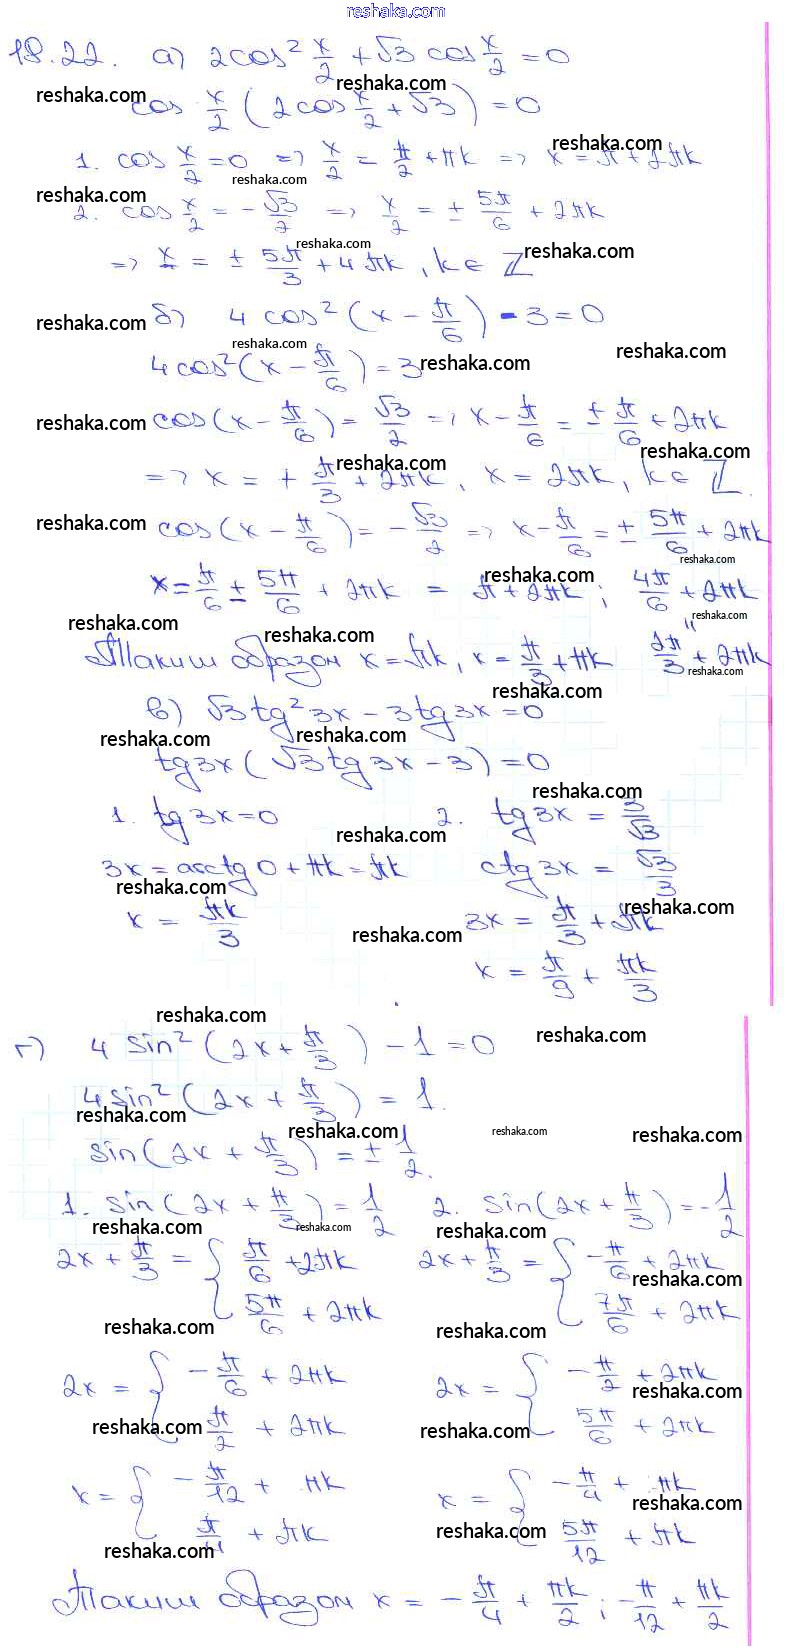 reshaka.com
18.22. а) 2cos² x/2 + √3 cos x/2 = 0
reshaka.com
reshaka.com cos x/2 (2cos x/2 + √3) = 0
reshaka.com
1. cos x/2 = 0 => x/2 = π/2 + πk => x = π + 2πk
reshaka.com
reshaka.com
2. cos x/2 = -√3/2 => x/2 = ± 5π/6 + 2πk
reshaka.com reshaka.com
=> x = ± 5π/3 + 4πk, k ∈ ℤ
reshaka.com б) 4 cos² (x - π/6) - 3 = 0
reshaka.com reshaka.com
4cos² (x - π/6) = 3 reshaka.com
reshaka.com cos (x - π/6) = √3/2 => x - π/6 = ± π/6 + 2πk
reshaka.com reshaka.com
=> x = + π/3 + 2πk, x = 2πk, k ∈ ℤ.
reshaka.com cos (x - π/6) = -√3/2 => x - π/6 = ± 5π/6 + 2πk
reshaka.com reshaka.com
x = π/6 ± 5π/6 + 2πk = π + 2πk; 4π/6 + 2πk
reshaka.com reshaka.com reshaka.com
"
Таким образом x = πk, x = π/3 + πk 2π/3 + 2πk
reshaka.com reshaka.com
в) √3 tg² 3x - 3tg 3x = 0
reshaka.com reshaka.com
tg 3x (√3 tg 3x - 3) = 0
reshaka.com
1. tg 3x = 0 2. tg 3x = 3/√3
reshaka.com
3x = arcctg 0 + πk = πk ctg 3x = √3/3
reshaka.com reshaka.com
x = πk/3 3x = π/3 + πk
reshaka.com
x = π/9 + πk/3
reshaka.com reshaka.com
г) 4 sin² (2x + π/3) - 1 = 0
4 sin² (2x + π/3) = 1.
reshaka.com reshaka.com reshaka.com reshaka.com
sin (2x + π/3) = ± 1/2.
1. sin (2x + π/3) = 1/2 2. sin (2x + π/3) = -1/2
reshaka.com reshaka.com reshaka.com
2x + π/3 = { π/6 + 2πk 2x + π/3 = { -π/6 + 2πk
reshaka.com
5π/6 + 2πk 7π/6 + 2πk
reshaka.com reshaka.com
2x = { -π/6 + 2πk 2x = { -π/2 + 2πk
reshaka.com
π/2 + 2πk 5π/6 + 2πk
reshaka.com reshaka.com
x = { -π/12 + πk x = { -π/4 + πk
reshaka.com
π/4 + πk 5π/12 + πk
reshaka.com reshaka.com
Таким образом x = -π/4 + πk/2; -π/12 + πk/2